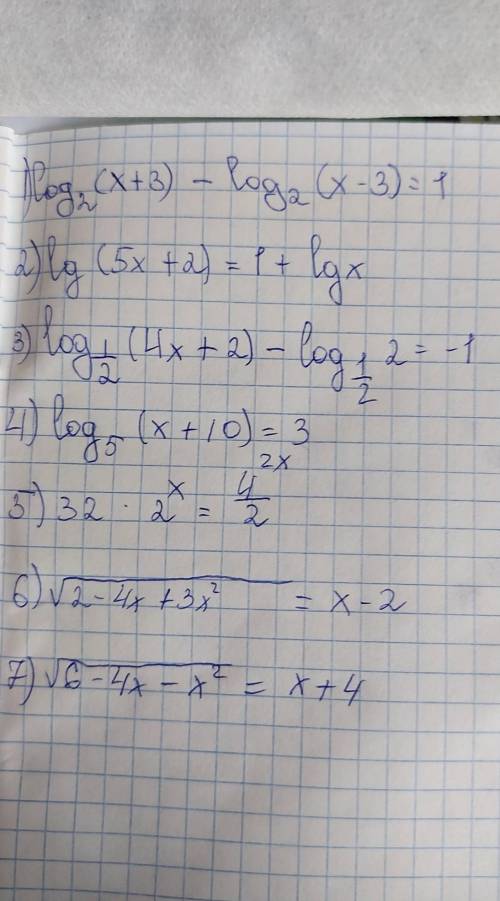 1) log₂(x+3) - log₂(x-3) = 1
2) lg(5x+2) = 1 + lgx
3) log_{1/2}(4x+2) - log_{1/2}2 = -1
4) log₅(x+10) = 3
5) 32 · 2^x = 4^{2x}/2
6) √(2-4x+3x²) = x-2
7) √(6-4x-x²) = x+4